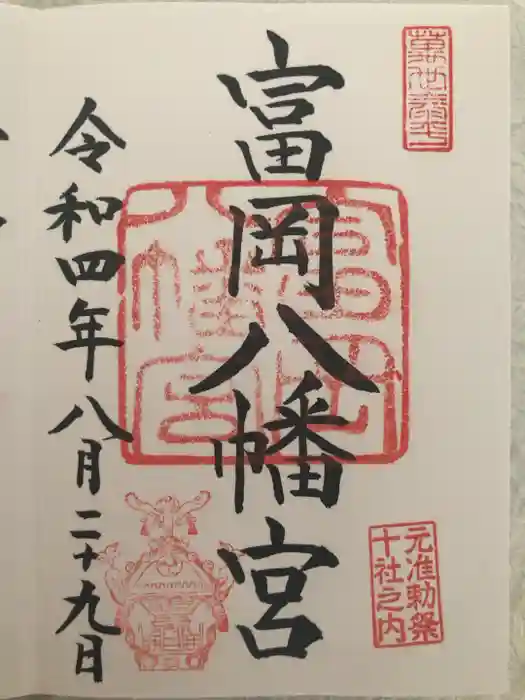 萬世泰平
元准勅祭
十社之内
富岡八幡宮
令和四年八月二十九日